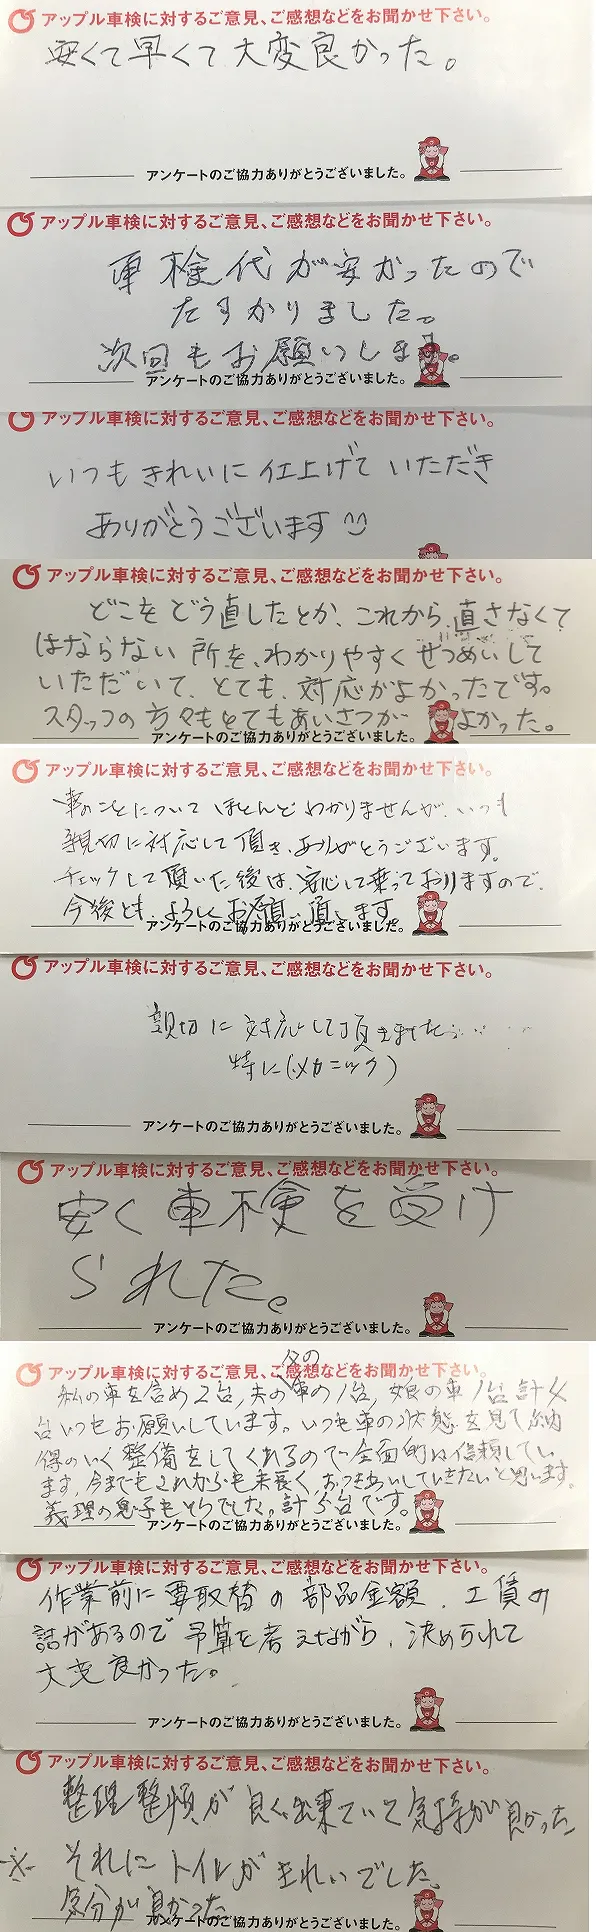 アップル車検に対するご意見、ご感想などをお聞かせ下さい。
安くて早くて大変良かった。
アンケートのご協力ありがとうございました。
アップル車検に対するご意見、ご感想などをお聞かせ下さい。
車検代が安かったので
たすかりました。
次回もお願いします。
アンケートのご協力ありがとうございました。
アップル車検に対するご意見、ご感想などをお聞かせ下さい。
いつもきれいに仕上げていただき
ありがとうございます
アップル車検に対するご意見、ご感想などをお聞かせ下さい。
どこをどう直したとか、これから直さなくて
はならない所を、わかりやすくせつめいして
いただいて、とても、対応がよかったです。
スタッフの方々もとてもあいさつがよかった。
アンケートのご協力ありがとうございました。
アップル車検に対するご意見、ご感想などをお聞かせ下さい。
車のことについてほとんどわかりませんが、いつも
親切に対応して頂き、ありがとうございます。
チェックして頂いた後は、安心して乗っておりますので、
今後とも、よろしくお願い頂します。
アンケートのご協力ありがとうございました。
アップル車検に対するご意見、ご感想などをお聞かせ下さい。
親切に対応して頂きました
特に(メカニック)
アンケートのご協力ありがとうございました。
アップル車検に対するご意見、ご感想などをお聞かせ下さい。
安く車検を受け
られた。
アンケートのご協力ありがとうございました。
アップル車検に対するご意見、ご感想などをお聞かせ下さい。
私の車を含め2台,夫の車の1台,娘の車1台計4
台いつもお願いしています。いつも車の状態を見て納
得のいく整備をしてくれるので全面的に信頼してい
ます,今までもこれからも末長く,おつきあいしていきたいと思います。
義理の息子もそうでした。計5台です。
アンケートのご協力ありがとうございました。
アップル車検に対するご意見、ご感想などをお聞かせ下さい。
作業前に要取替の部品金額、工賃の
話があるので予算を考えながら、決められて
大変良かった。
アンケートのご協力ありがとうございました。
アップル車検に対するご意見、ご感想などをお聞かせ下さい。
整理整頓が良く出来ていて気持が良かった
※それにトイレがきれいでした。
気分が良かった
アンケートのご協力ありがとうございました。